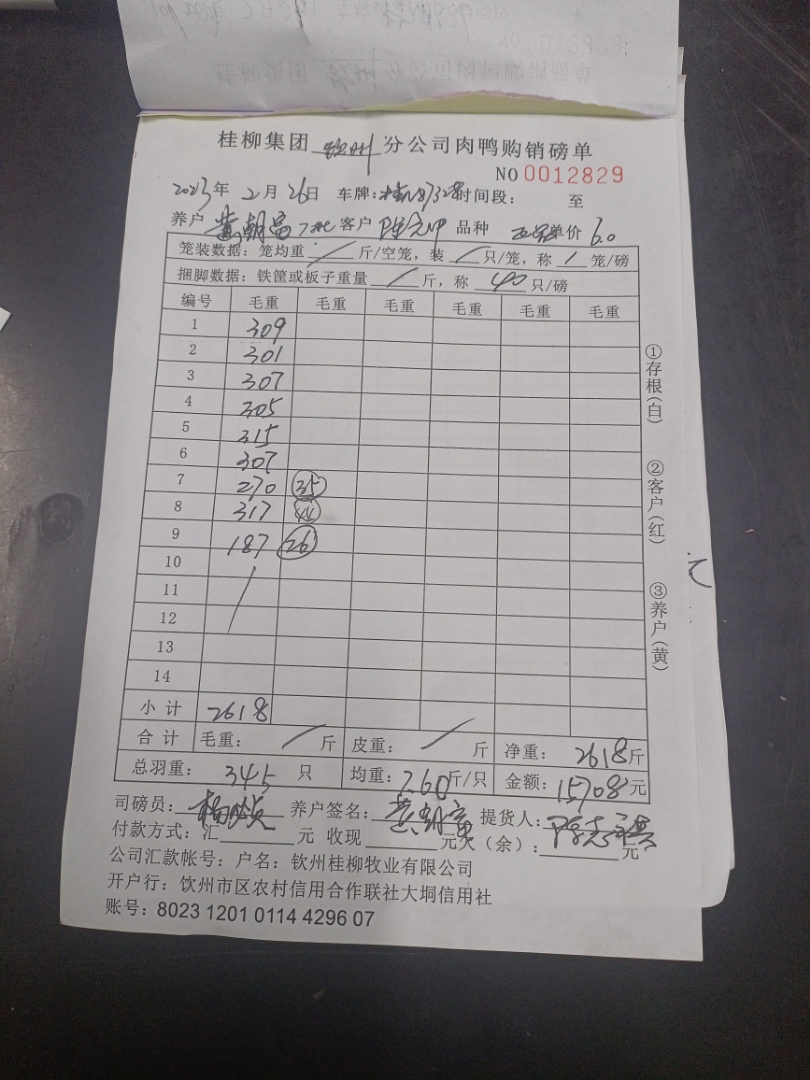 桂柳集团 钦州 分公司肉鸭购销磅单
NO 0012829
2023年 2月 26日 车牌: 时间段: 至
养户 黄朝富 客户 品种 单价 6.0
笼装数据: 笼均重 / 斤/空笼, 装 / 只/笼, 称 / 笼/磅
捆脚数据: 铁筐或板子重量 / 斤, 称 40 只/磅
编号 毛重 毛重 毛重 毛重 毛重 毛重
1 309
2 301
3 307
4 305
5 315
6 307
7 270 35
8 317 44
9 187 26
10
11
12
13
14
小计 2618
合计 毛重: / 斤 皮重: / 斤 净重: 2618斤
总羽重: 345 只 均重: 7.60斤/只 金额: 15708元
司磅员: 养户签名: 黄朝富 提货人:
付款方式: 汇 元 收现 元欠(余): 元
公司汇款帐号: 户名: 钦州桂柳牧业有限公司
开户行: 饮州市区农村信用合作联社大垌信用社
账号: 8023 1201 0114 4296 07
①存根(白)
②客户(红)
③养户(黄)